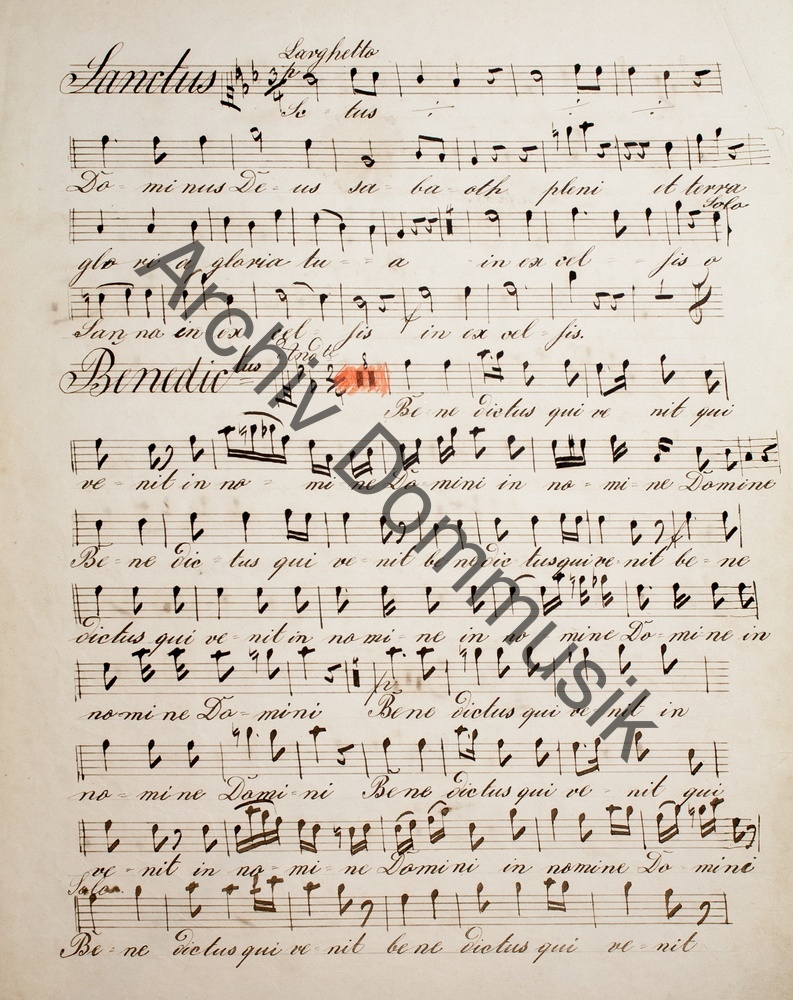 Larghetto
Sanctus
p
Sc tus
Do- mi nus De- us sa- ba- oth pleni et terra
Solo
glo ri a gloria tu - - a in ex cel - sis o
San na in ex cel - sis in ex cel - sis.
Andte
Benedictus
Be- ne dictus qui ve nit qui
ve- nit in no - mi- ne Domini in no- mi- ne Domine
Be- ne dic- tus qui ve- nit be ne dic tus qui ve- nit be- ne
dictus qui ve- nit in no mi- ne in no mine Do- mi ne in
no mi ne Do- mini Bene dictus qui ve- nit in
no- mi ne Domi- ni Bene dictus qui ve- nit qui
ve- nit in no- mi- ne Domini in nomine Do- mini
Solo
Be- ne dictus qui ve- nit bene dictus qui ve- nit
Archiv Dommusik